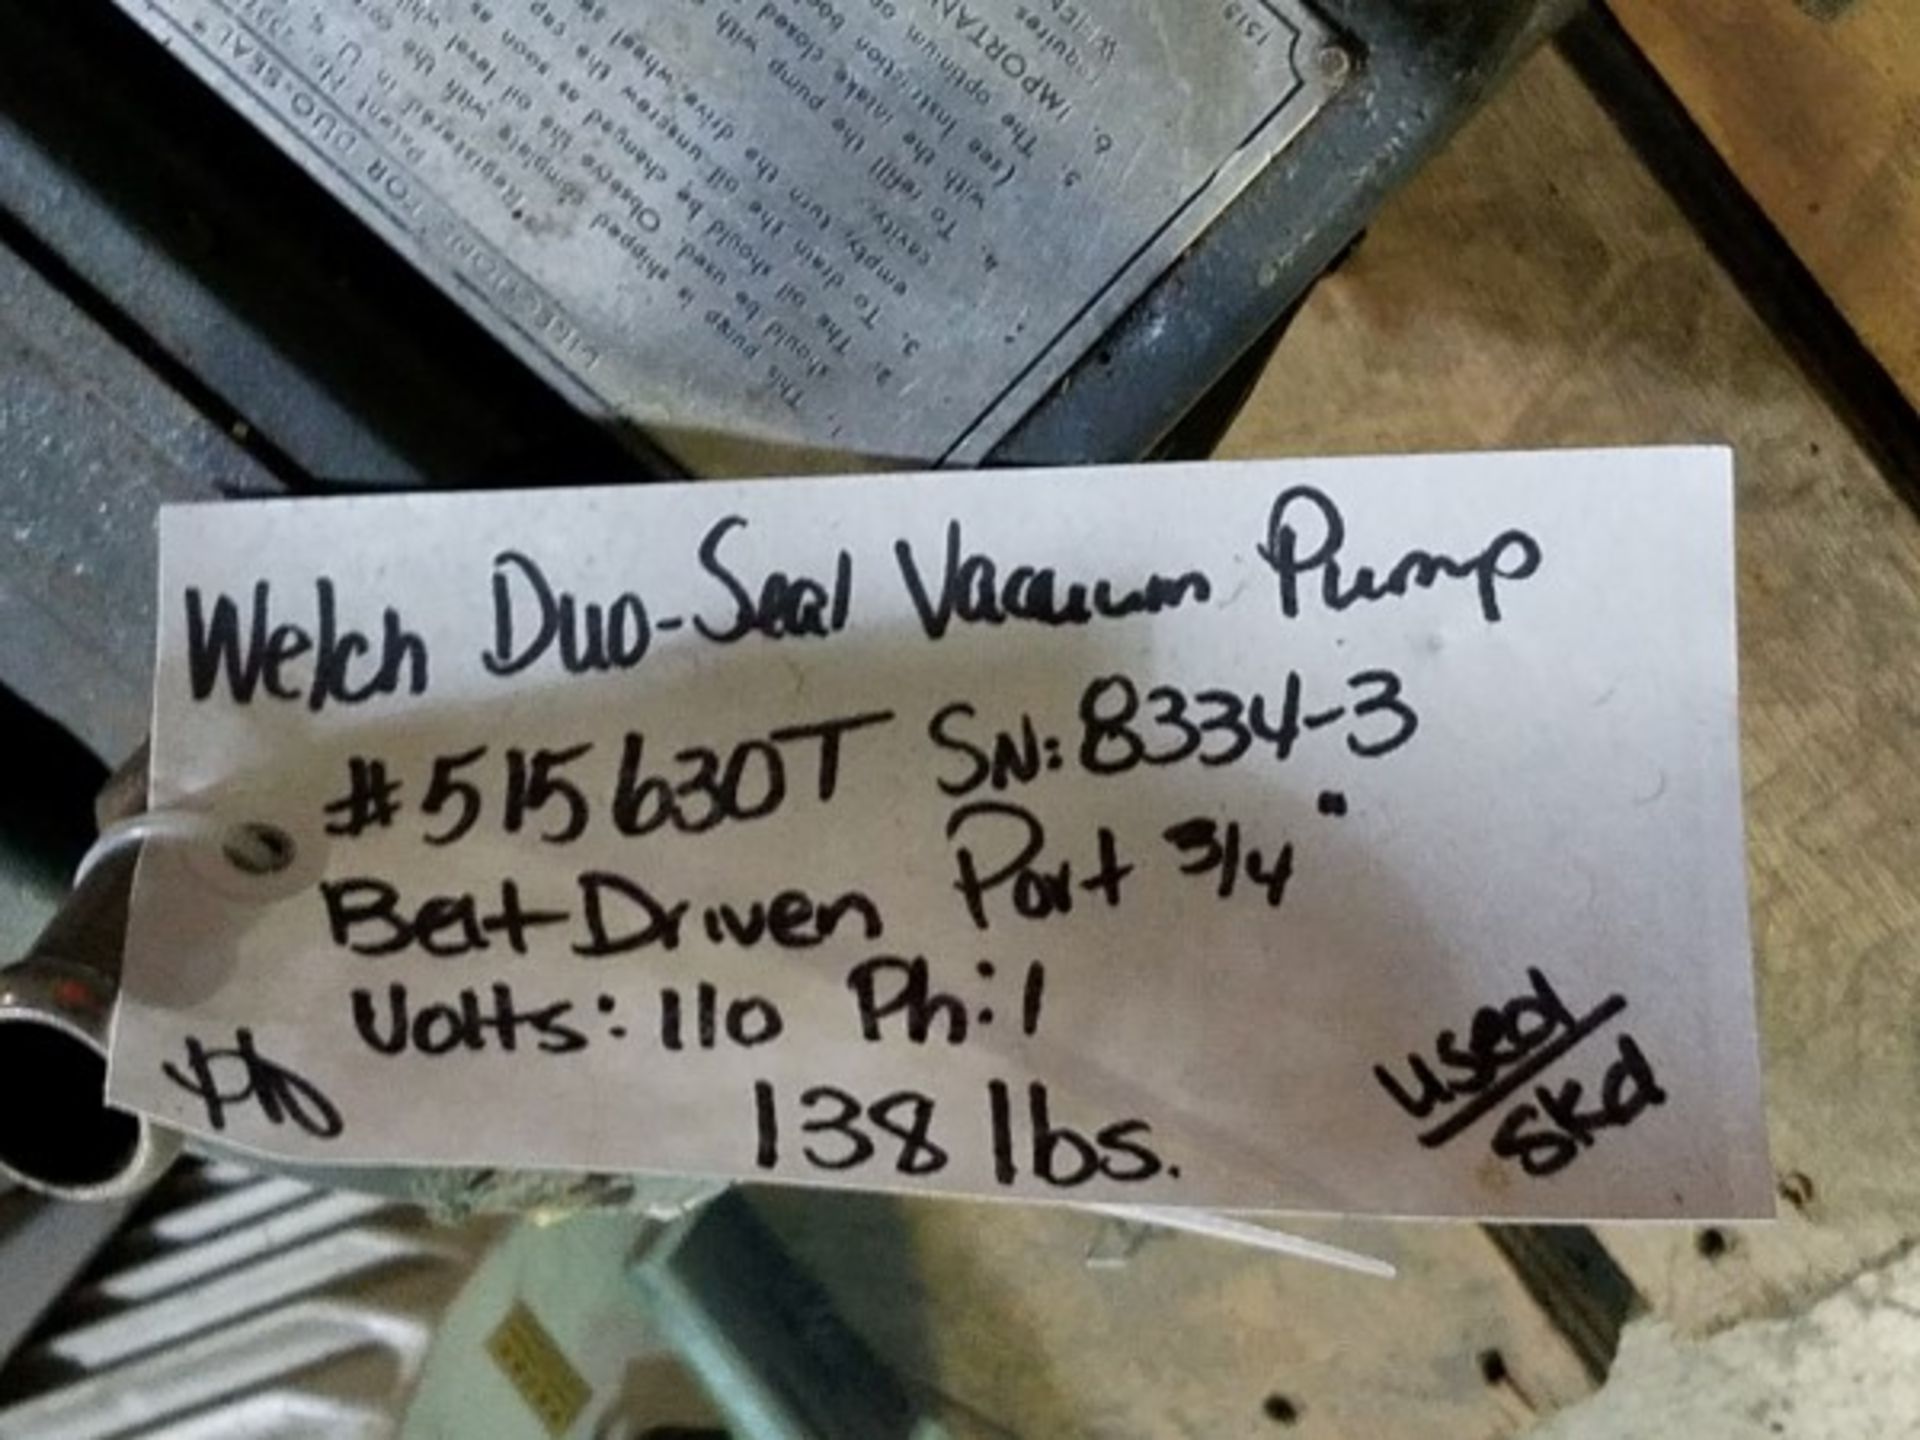 DIRECTIONS FOR DUO-SEAL
*Registered Patent No.
1. This pump is shipped complete with
should be used. Observe the oil level
2. The oil should be changed as soon as
3. To drain the oil-unscrew the cap
empty, turn the drive wheel
cavity.
4. To refill the pump with
with the intake closed
(see Instruction
5. The optimum
6. IMPORTAN
Welch Duo-Seal Vacuum Pump
#515630T SN: 8334-3
Belt Driven Port 3/4"
Volts: 110 Ph: 1
138 lbs.
used/
skd